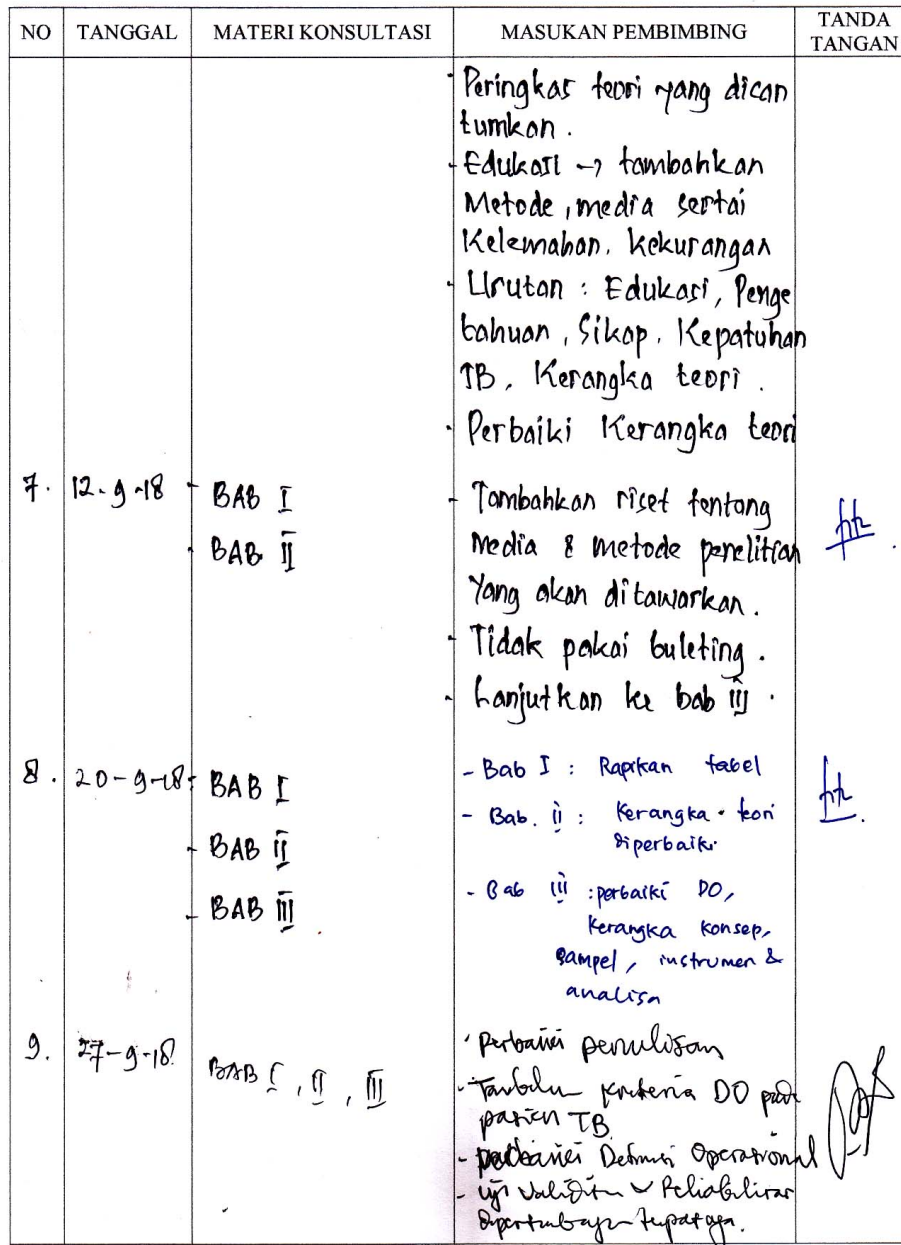 NO TANGGAL MATERI KONSULTASI MASUKAN PEMBIMBING TANDA TANGAN
- Peringkas teori yang dican
tumkan.
- Edukasi → tambahkan
Metode, media sertai
Kelemahan, kekurangan
- Urutan : Edukasi, Penge
tahuan, Sikap, Kepatuhan
TB, Kerangka teori.
- Perbaiki Kerangka teori
7. 12-9-18 - BAB I - Tambahkan riset tentang
- BAB II media & metode penelitian
yang akan ditawarkan.
- Tidak pakai buleting.
- Lanjutkan ke bab III.
8. 20-9-18 - BAB I - Bab I : Rapikan tabel
- BAB II - Bab. II : Kerangka teori
diperbaiki
- BAB III - Bab III : perbaiki DO,
Kerangka konsep,
sampel, instrumen &
analisa
9. 27-9-18 BAB I, II, III - Perbaiki penulisan
- kriteria DO pada
pasien TB
- perbaiki Definisi Operasional
- uji Validitas Reliabilitas